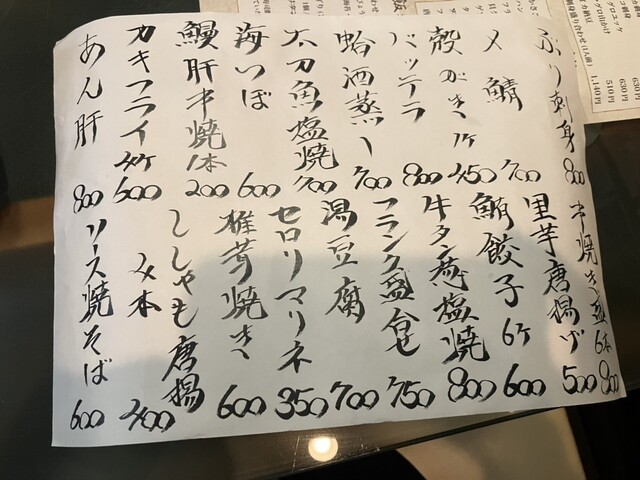 ぶり刺身 800
〆鯖 700
殻がき 1ケ 450
バッテラ 800
蛤酒蒸し 700
太刀魚塩焼 700
海つぼ 600
鰻肝串焼 1本 200
カキフライ 4ケ 600
あん肝 800
串焼き盛 6本 800
里芋唐揚げ 500
鮪餃子 6ケ 600
牛タン葱塩焼 800
フランク盛合せ 750
湯豆腐 700
セロリマリネ 350
椎茸焼き 600
ししゃも唐揚
4本 400
ソース焼そば 600